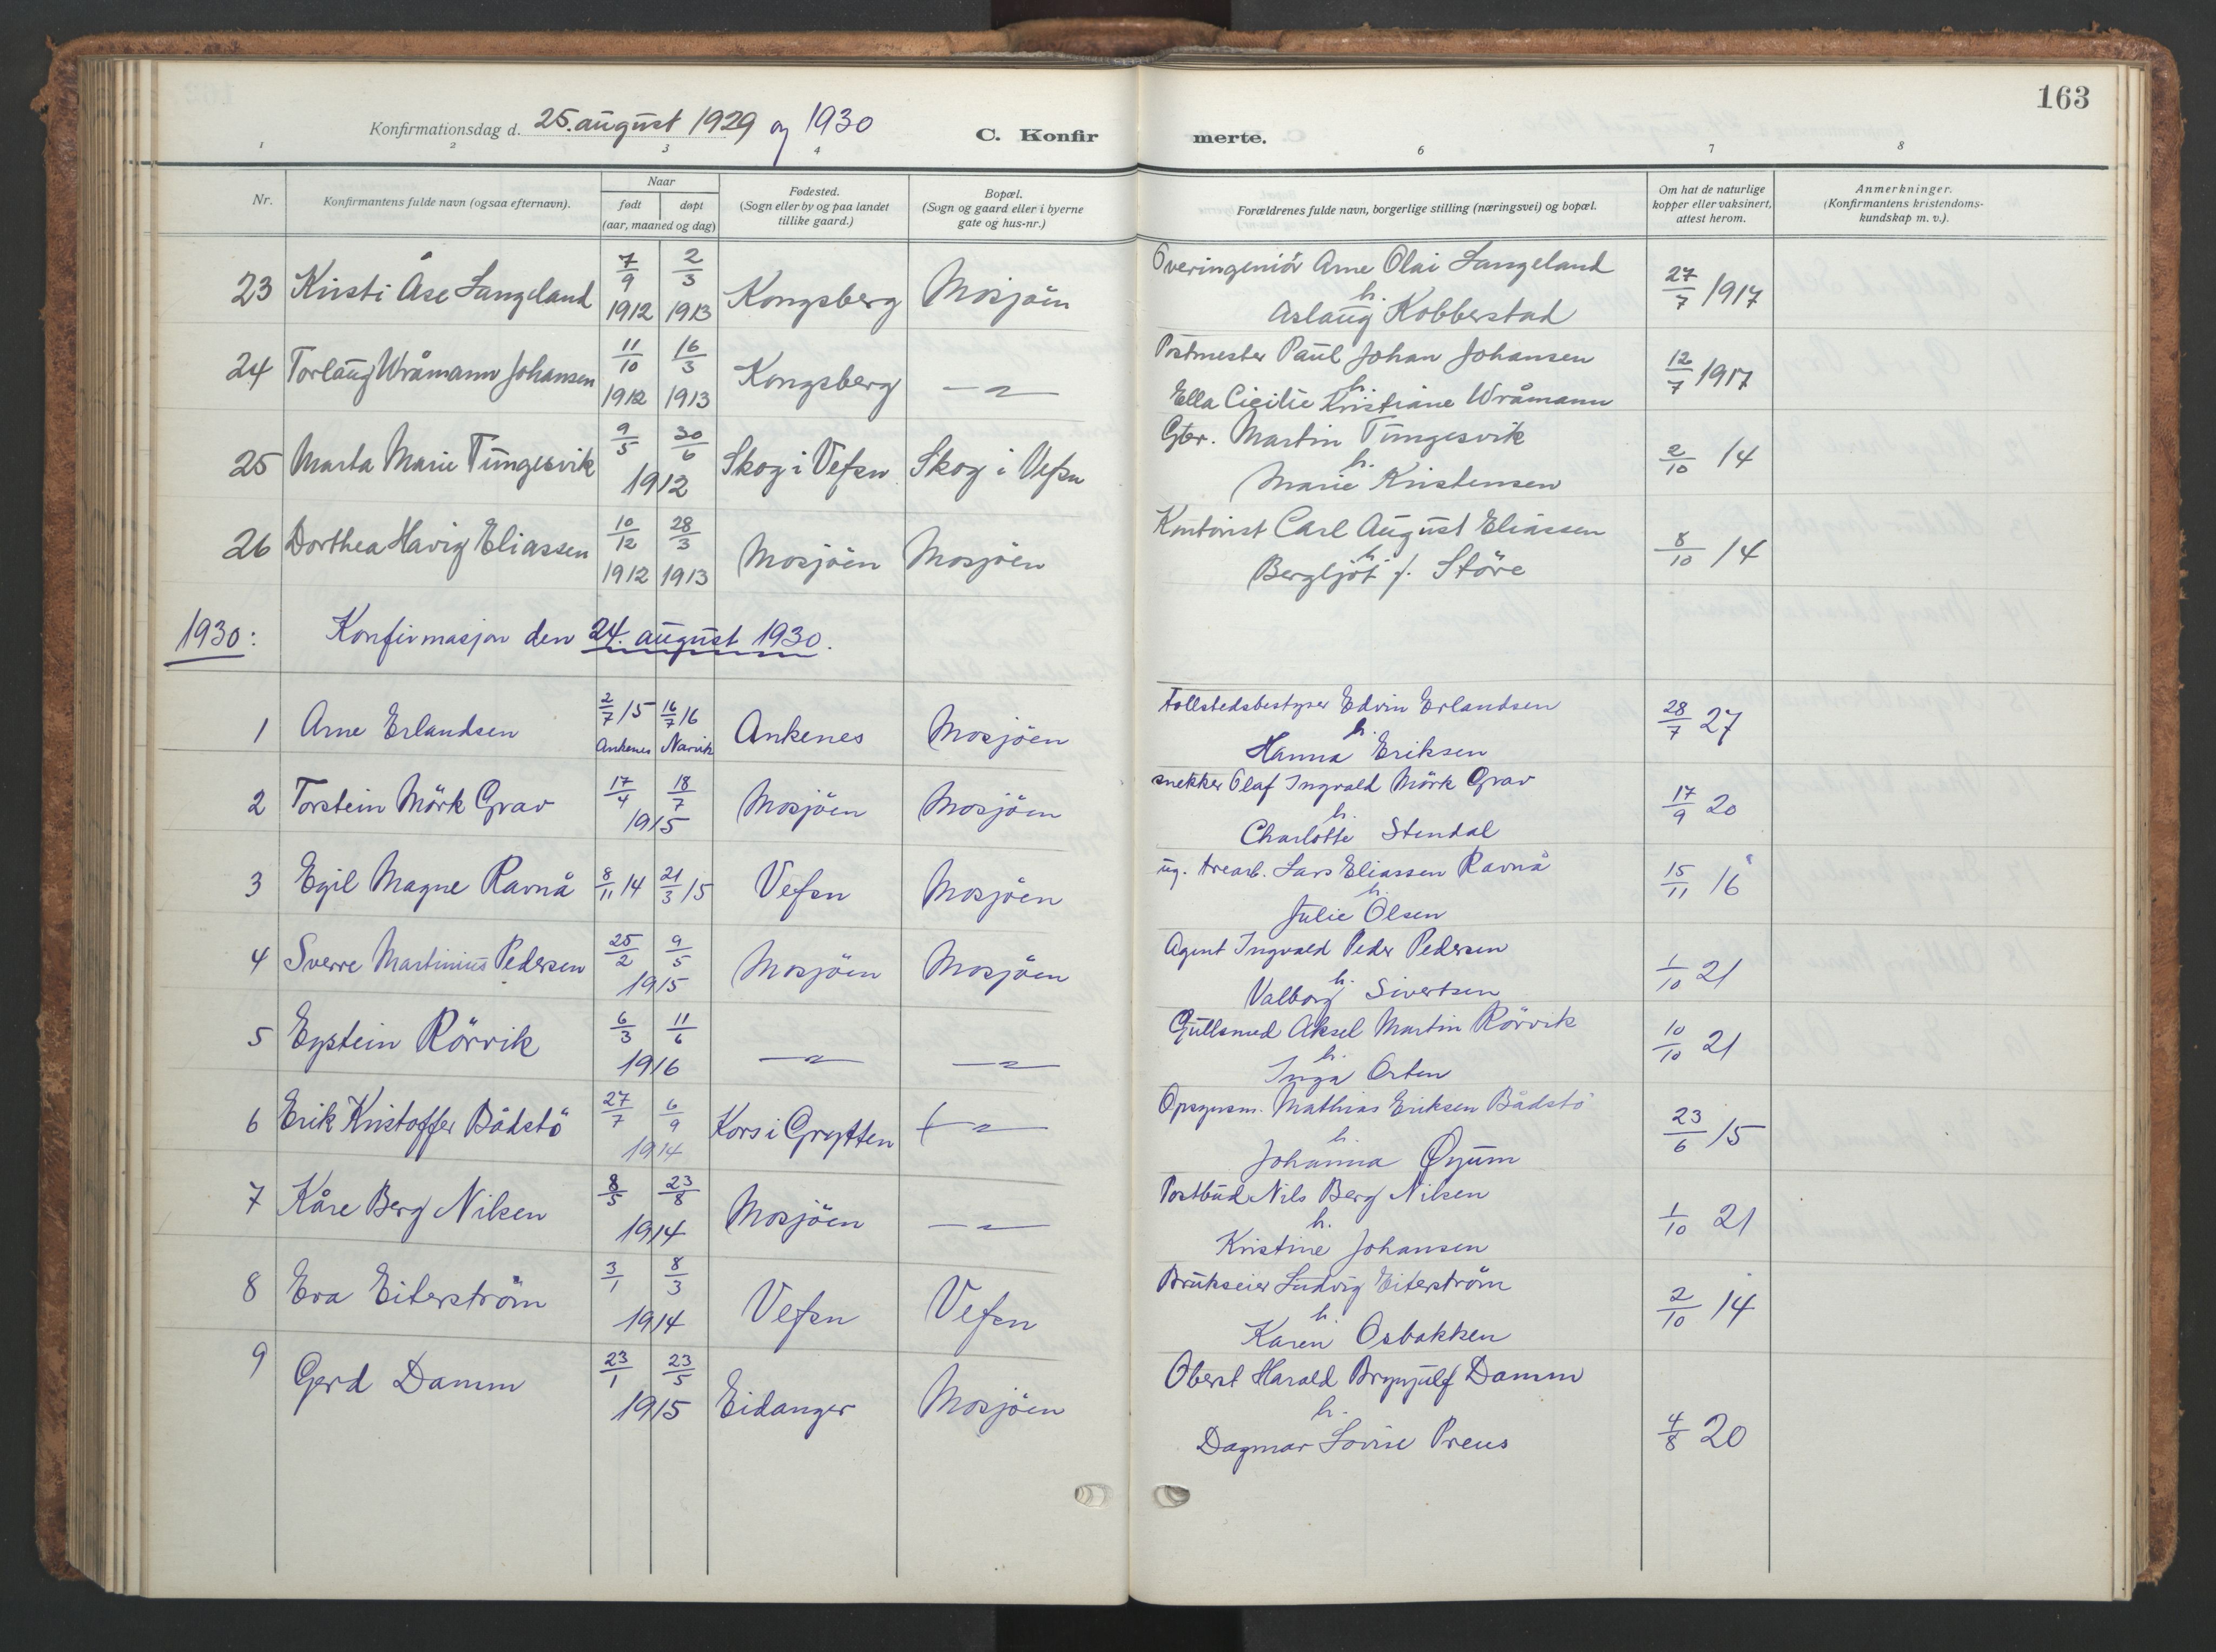 163
Konfirmationsdag d. 25. august 1929 og 1930
C. Konfirmerte.
1 2 3 4 6 7 8
Nr.
Konfirmantens fulde navn (ogsaa efternavn).
Naar
født døpt
(aar, maaned og dag)
Fødested.
(Sogn eller by og paa landet
tillike gaard.)
Bopæl.
(Sogn og gaard eller i byerne
gate og hus-nr.)
Forældrenes fulde navn, borgerlige stilling (næringsvei) og bopæl.
Om hat de naturlige
kopper eller vaksinert,
attest herom.
Anmerkninger.
(Konfirmantens kristendoms-
kundskap m. v.).
23 Kristi Åse Langeland 7/9 1912 2/3 1913 Kongsberg Mosjöen Overingeniör Arne Olai Langeland 27/7 1917
h.
Aslaug Kobberstad
24 Torlaug Wråmann Johansen 11/10 1912 16/3 1913 Kongsberg —„— Postmester Paul Johan Johansen 12/7 1917
h.
Ella Cicilie Kristiane Wråmann
25 Marta Marie Tungesvik 9/5 30/6 1912 Skog i Vefsn Skog i Vefsn Gbr. Martin Tungesvik 2/10 14
h.
Marie Kristensen
26 Dorthea Havig Eliassen 10/12 1912 28/3 1913 Mosjöen Mosjöen Kontorist Carl August Eliassen 8/10 14
h.
Bergljot f. Störe
1930: Konfirmasjon den 24. august 1930.
1 Arne Erlandsen 2/7 15 Ankenes 16/7 16 Narvik Ankenes Mosjöen Tollstedsbestyrer Edvin Erlandsen 28/7 27
h.
Hanna Eriksen
2 Torstein Mörk Grav 17/4 18/7 1915 Mosjöen Mosjöen snekker Olaf Ingvald Mörk Grav 17/9 20
h.
Charlotte Stendal
3 Egil Magne Ravnå 8/11 14 21/3 15 Vefsn Mosjöen ug. trearb. Lars Eliassen Ravnå 15/11 16
h.
Julie Olsen
4 Sverre Martinius Pedersen 25/2 9/5 1915 Mosjöen Mosjöen Agent Ingvald Peder Pedersen 1/10 21
h.
Valborg Sivertsen
5 Eystein Rörvik 6/3 11/6 1916 —„— —„— Gullsmed Aksel Martin Rörvik 10/10 21
h.
Inga Orten
6 Erik Kristoffer Bådstö 27/7 6/9 1914 Kors i Grytten —„— Opsynsm. Mathias Eriksen Bådstö 23/6 15
h.
Johanna Øyum
7 Kåre Berg Nilsen 8/5 23/8 1914 Mosjöen —„— Postbud Nils Berg Nilsen 1/10 21
h.
Kristine Johansen
8 Eva Eiterström 3/1 8/3 1914 Vefsn Vefsn Brukseier Ludvig Eiterström 2/10 14
h.
Karen Osbakken
9 Gerd Damm 23/1 23/5 1915 Eidanger Mosjöen Oberst Harald Brynjulf Damm 4/8 20
h.
Dagmar Lovise Preus